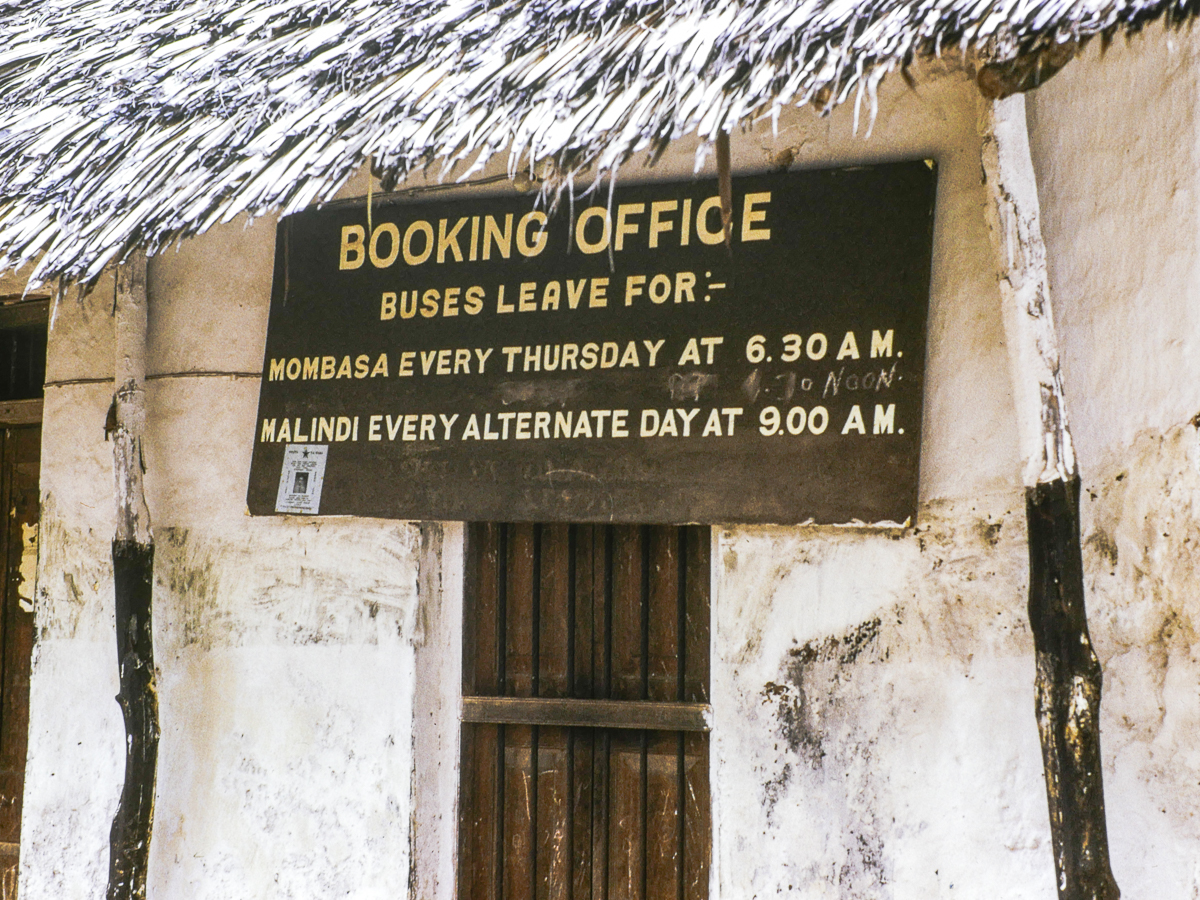 BOOKING OFFICE
BUSES LEAVE FOR:-
MOMBASA EVERY THURSDAY AT 6.30 A M.
NOON.
MALINDI EVERY ALTERNATE DAY AT 9.00 A M.